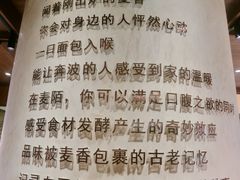 闻着刚出炉的麦香
你会对身边的人怦然心欧
一日面包入喉
能让奔波的人感受到家的温暖
在麦陌，你可以满足口腹之欲的同时
感受食材发酵产生的奇妙效应
品味被麦香包裹的古老记忆